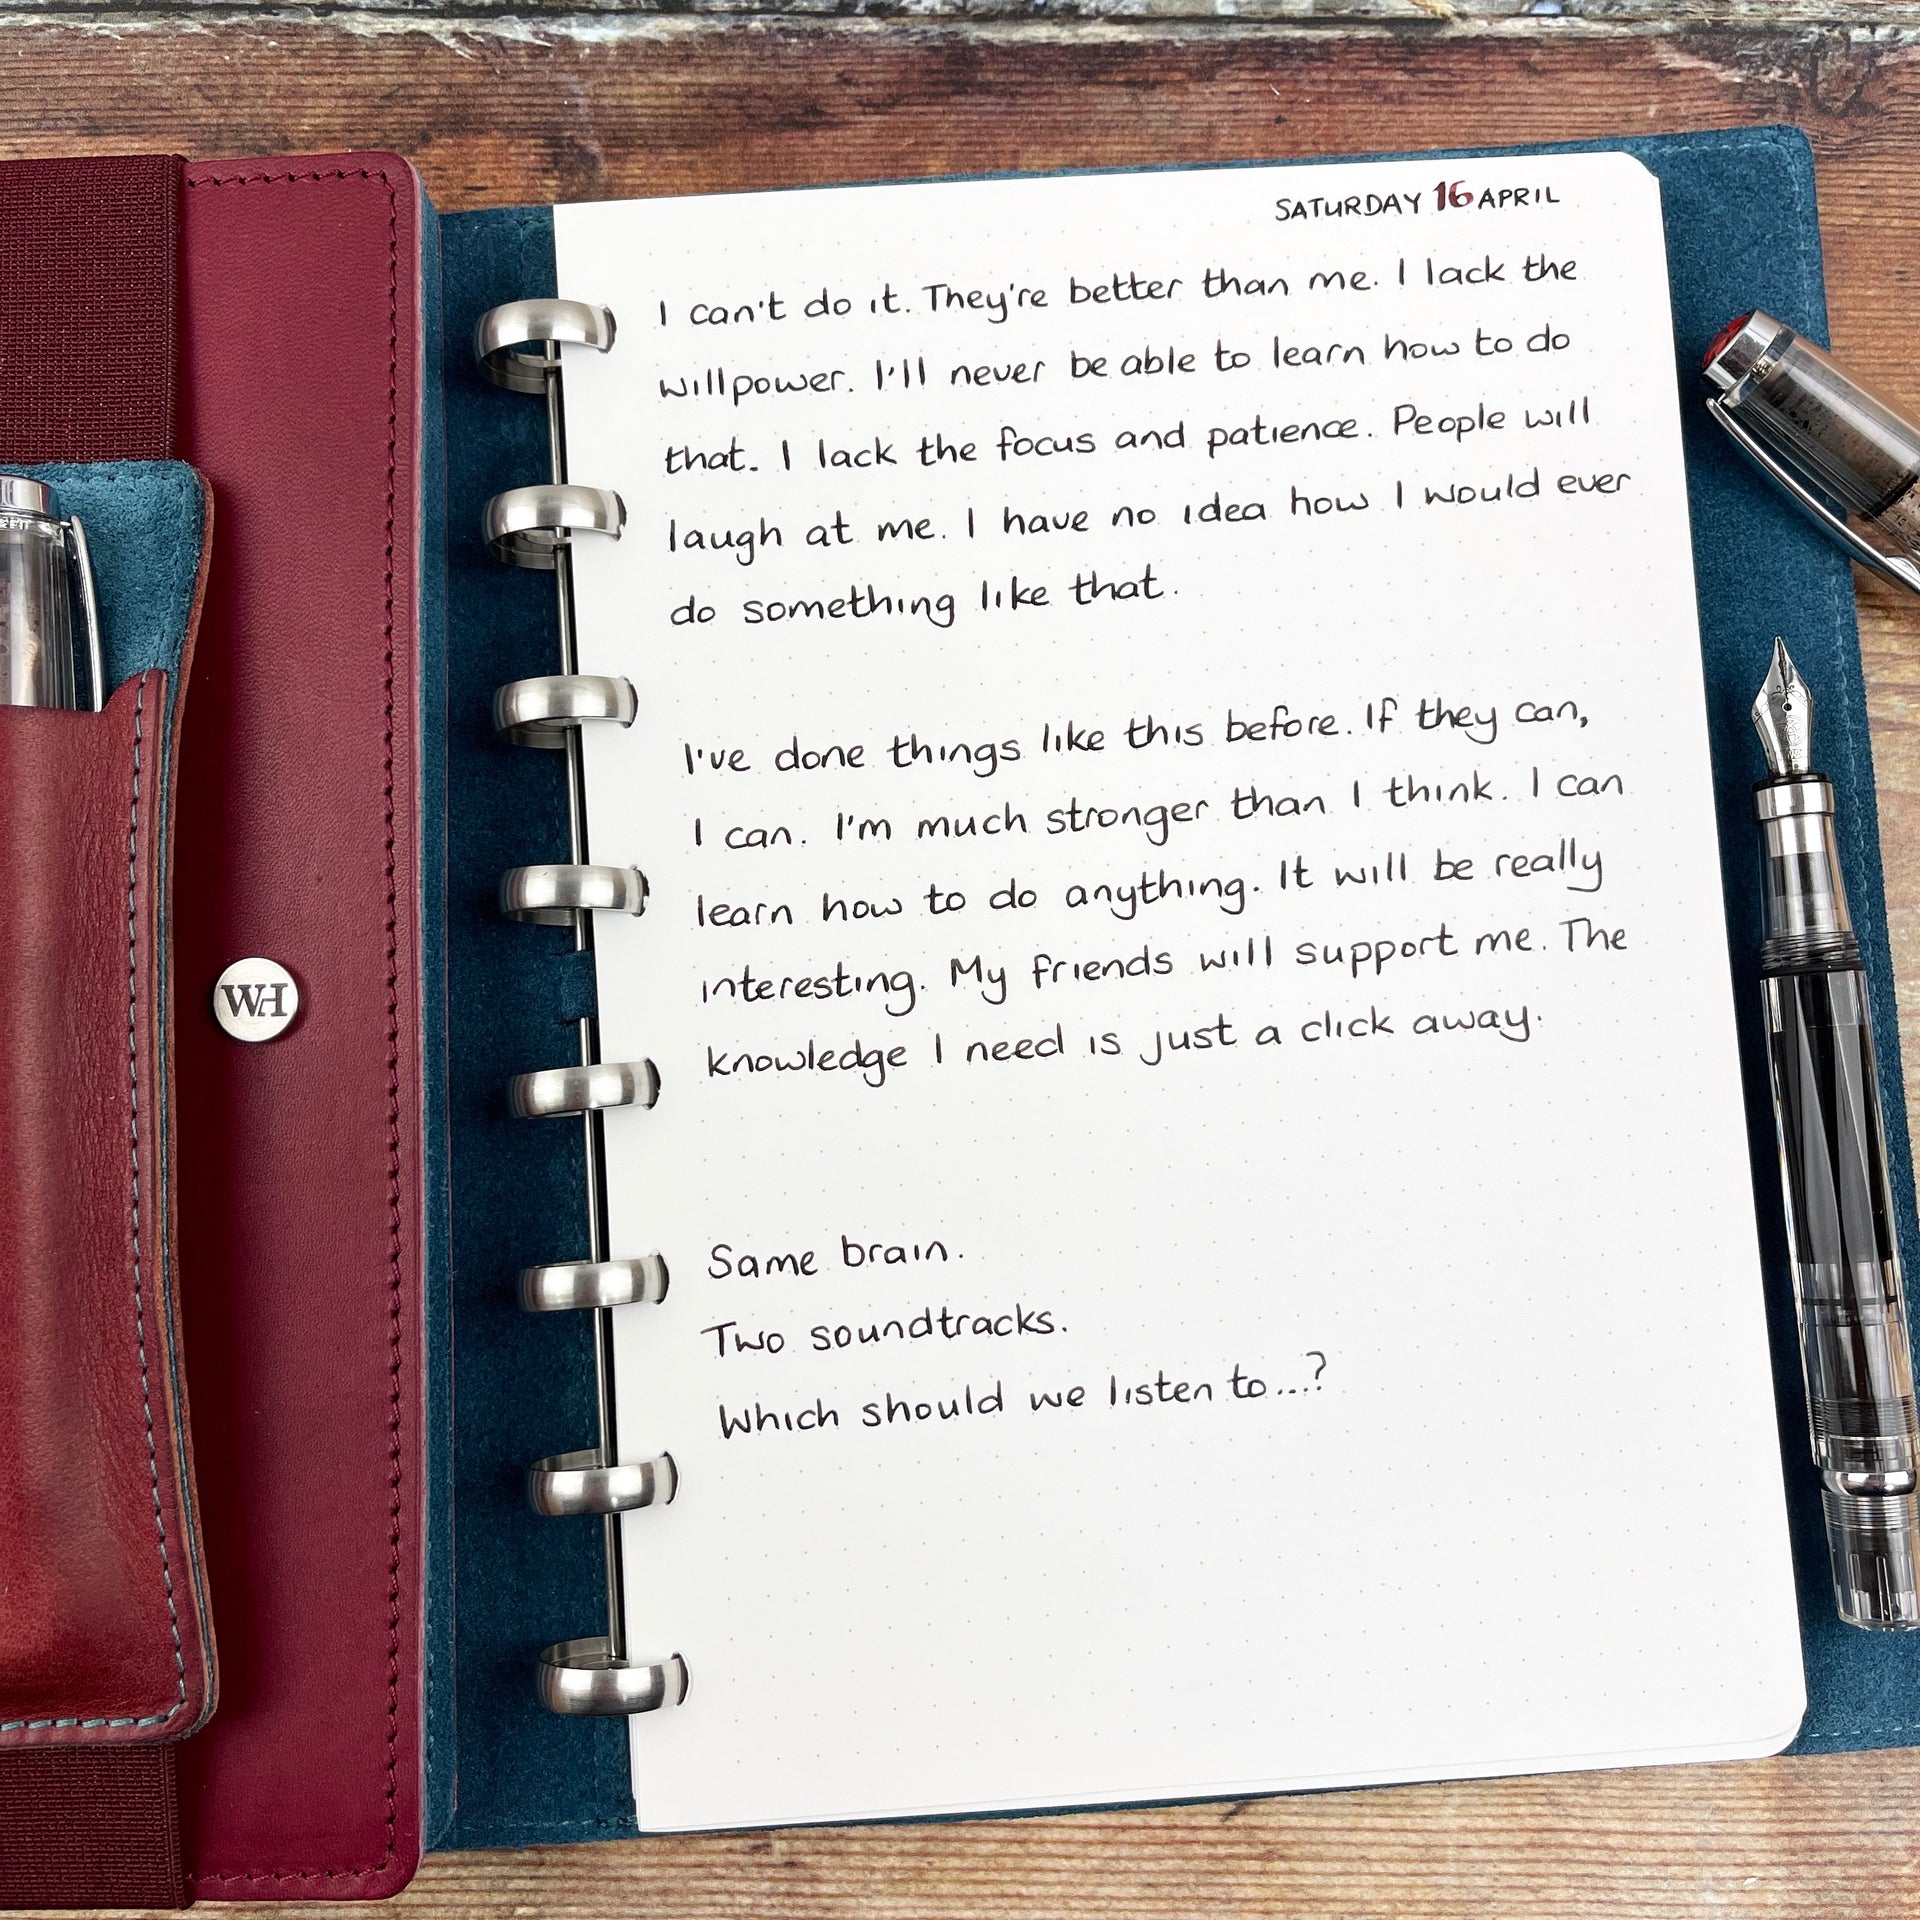 SATURDAY 16 APRIL
I can't do it. They're better than me. I lack the
willpower. I'll never be able to learn how to do
that. I lack the focus and patience. People will
laugh at me. I have no idea how I would ever
do something like that.
I've done things like this before. If they can,
I can. I'm much stronger than I think. I can
learn how to do anything. It will be really
interesting. My friends will support me. The
knowledge I need is just a click away.
Same brain.
Two soundtracks.
Which should we listen to...?
WH